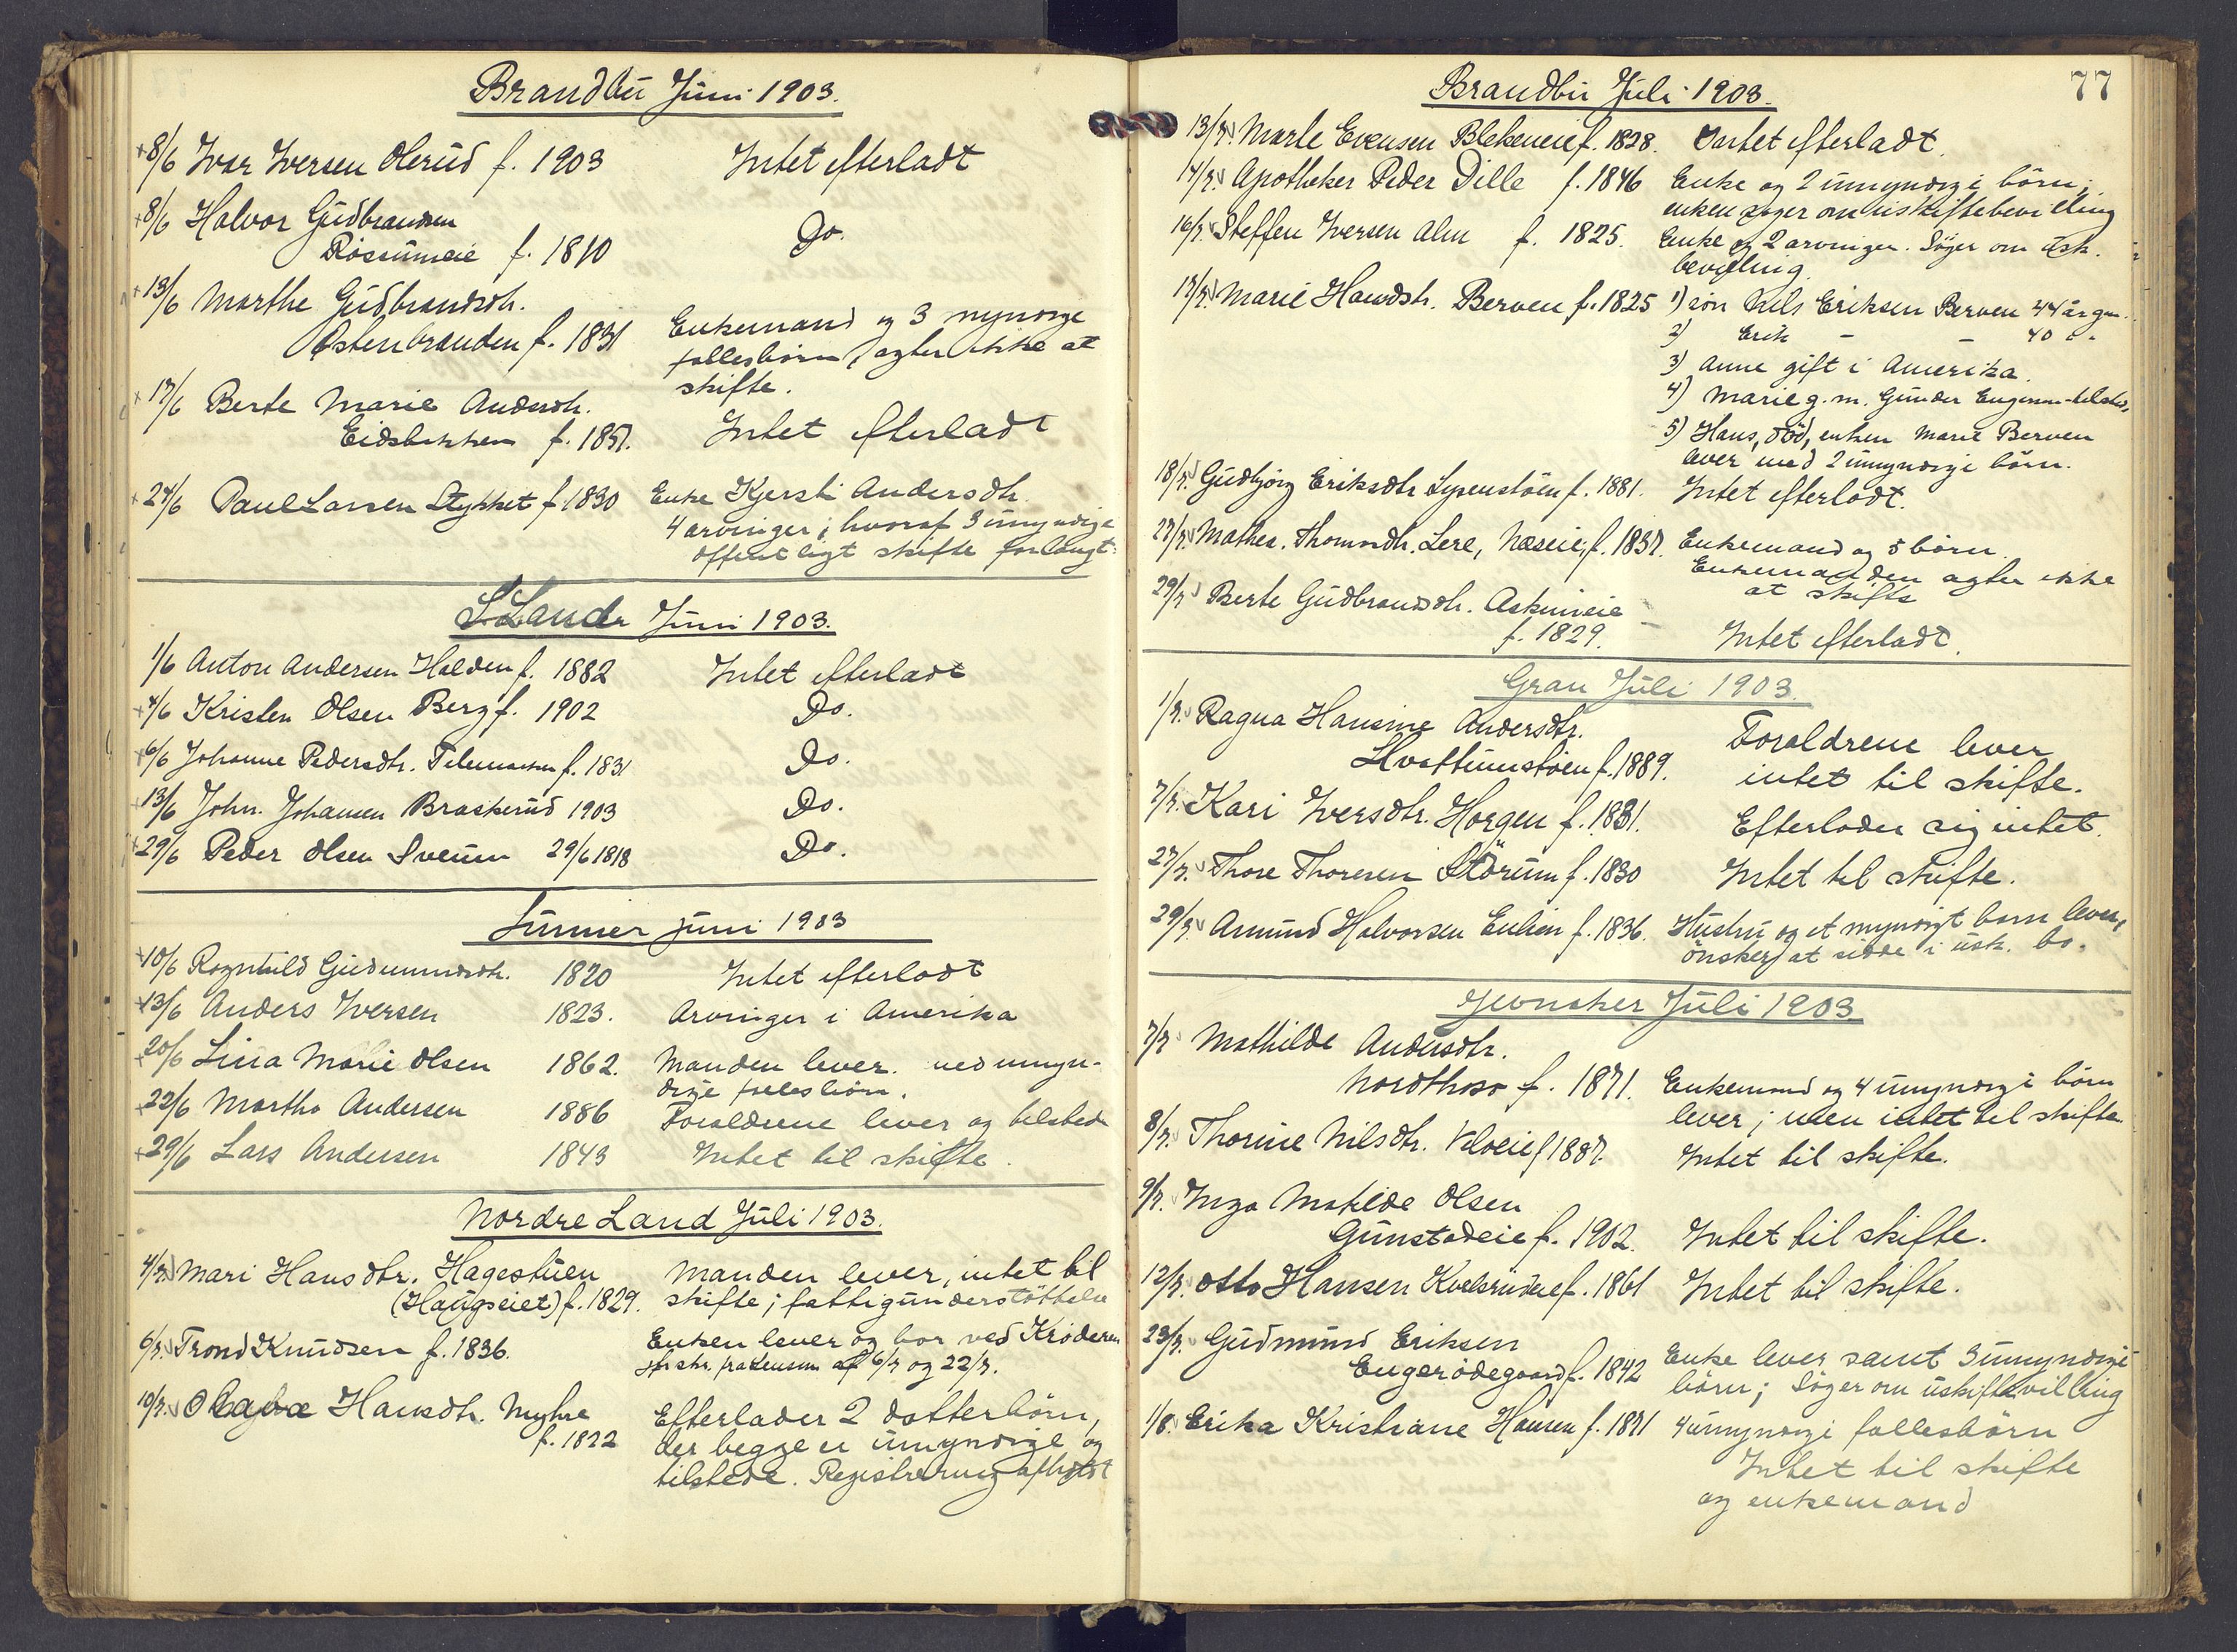 Brandbu Juni 1903.
+8/6 Ivar Iversen Olerud f. 1903 Intet efterladt
+8/6 Halvor Gudbrandsen
Rossumeie f. 1810 Do.
+13/6 Marthe Gudbrandsdtr.
Østenbraaden f. 1831 Enkemand og 3 myndige
fællesbörn, agter ikke at
skifte.
+17/6 Berte Marie Andersdtr.
Eidsbakken f. 1857. Intet efterladt
+24/6 Paul Larsen Stykket f. 1830 Enke Kjersti Andersdtr.
4 arvinger; hvoraf 3 umyndige
offentligt skifte forlangt.
S. Land Juni 1903.
1/6 Anton Andersen Halden f. 1882 Intet efterladt
+4/6 Kristen Olsen Berg f. 1902 Do.
+6/6 Johanne Pedersdtr. f. 1831 Do.
+13/6 John Johansen Braskerud 1903 Do.
+29/6 Peder Olsen Sveum 29/6 1818 Do.
Lunner juni 1903
+10/6 Ragnhild Gudmundsdtr. 1820 Intet efterladt
+13/6 Anders Iversen 1823. Arvinger i Amerika
+20/6 Lina Marie Olsen 1862. Manden lever. med umyn-
dige fællesbörn.
+22/6 Martha Andersen 1886 Forældrene lever og tilstede
+29/6 Lars Andersen 1843 Intet til skifte.
Nordre Land Juli 1903.
4/7. Mari Hansdtr. Hagestuen Manden lever, intet til
(Haugseiet) f. 1829. skifte; fattigunderstöttelse
6/7. Trond Knudsen f. 1836. Enken lever og bor ved Kröderen
jfr. skr. fra Lensm. af 6/7 og 22/7.
10/7. Hansdtr. Myhre Efterlader 2 datterbörn,
f. 1822 der begge er umyndige og
tilstede. Registrering afholdt
77
Brandbu Juli 1903.
13/7. Marte Evensen Blekeneie f. 1828. Intet efterladt.
14/7. Apotheker Peder Dille f. 1846 Enke og 2 umyndige börn;
enken söger om uskiftebevilling
16/7. Steffen Iversen Alm f. 1825. Enke og 2 arvinger. Söger om usk.
bevilling.
17/7. Marie Hansdtr. Berven f. 1825 1) sön Nils Eriksen Berven 44 år gm.
2) Erik - - 40 -
3) Anne gift i Amerika.
4) Marie g. m. Gunder tilsted,
5) Hans, död, enken Marie Berven
lever med 2 umyndige börn.
18/7. Gudbjörg Eriksdtr f. 1881. Intet efterladt.
27/7. Mathea Thomasdtr. Lere, Næseie, f. 1837. Enkemand og 5 börn.
Enkemanden agter ikke
at skifte
29/7 Berte Gudbrandsdtr. Askimeie
f. 1829. Intet efterladt.
Gran Juli 1903.
1/7. Ragna Hansine Andersdtr. Forældrene lever
Hvattumstöen f. 1889. intet til skifte.
7/7. Kari Iversdtr. Horgen f. 1831. Efterlader sig intet.
27/7. Thore Thoresen Störum f. 1830 Intet til skifte.
29/7. Amund Halvorsen Enlien f. 1836. Hustru og et myndigt barn lever,
önsker at sidde i usk. bo.
Jevnaker Juli 1903.
7/7 Mathilde Andersdtr.
f. 1871. Enkemand og 4 umyndige börn
lever; men intet til skifte.
8/7. Thorine Nilsdtr. Veloeie f 1887. Intet til skifte.
9/7. Inga Matilde Olsen
Gunstadeie f. 1902. Intet til skifte.
12/7. Otto Hansen f. 1861 Intet til skifte.
23/7. Gudmund Eriksen Enke lever samt 3 umyndige
Engerödegaard f. 1842 börn; Söger om uskiftevilling
1/8. Erika Kristiane Hansen f. 1871 4 umyndige fællesbörn
Intet til skifte
og enkemand